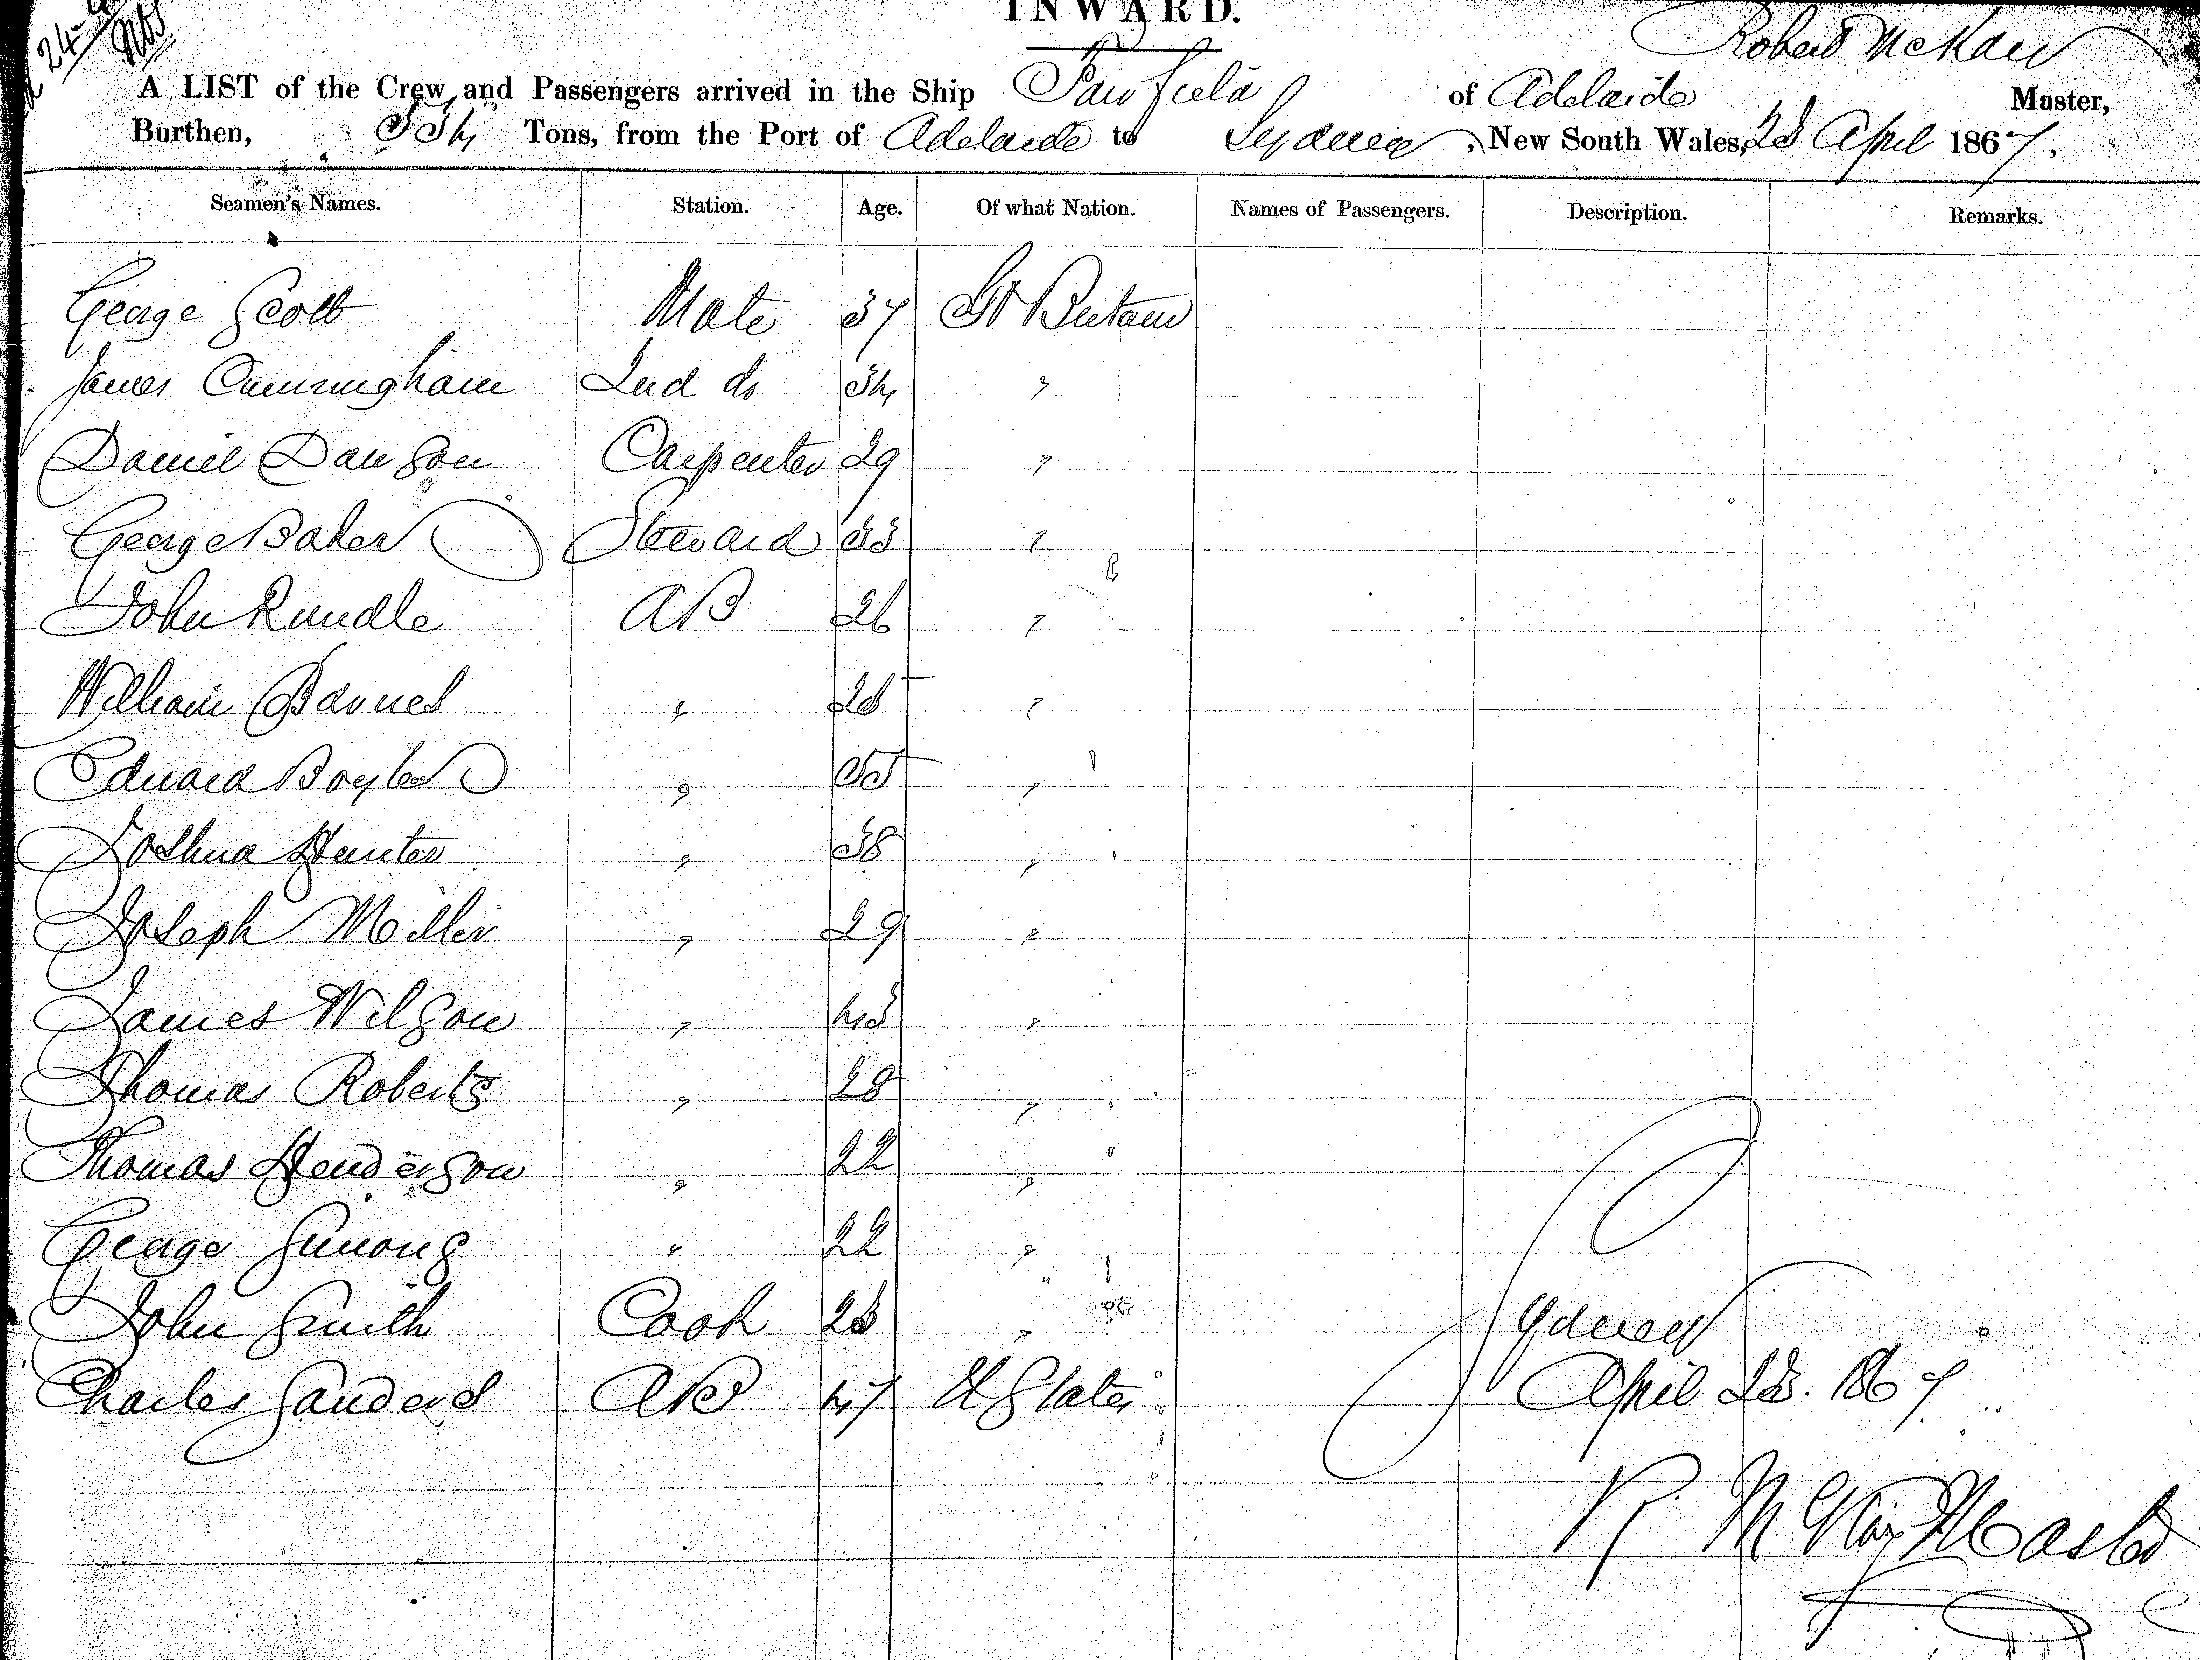 INWARD.
Robert McKay
A LIST of the Crew and Passengers arrived in the Ship Fairfield of Adelaide Master,
Burthen, 334 Tons, from the Port of Adelaide to Sydney, New South Wales, 23 April 1867.
Seamen's Names. Station. Age. Of what Nation. Names of Passengers. Description. Remarks.
George Scott Mate 37 Gt Britain
James Cunningham 2nd do 34 "
Daniel Dawson Carpenter 29 "
George Baker Steward 33 "
John Rundle AB 26 "
William Barnes " "
Edward Boyle " "
Joshua Hunter " 38 "
Joseph Miller " 29 "
James Wilson " 43 "
Thomas Roberts " 28 "
Thomas Henderson " 22 "
George " 22 "
John Smith Cook "
Sydney
Charles Sanders AB 47 U States
April 23. 1867.
R McKay Master